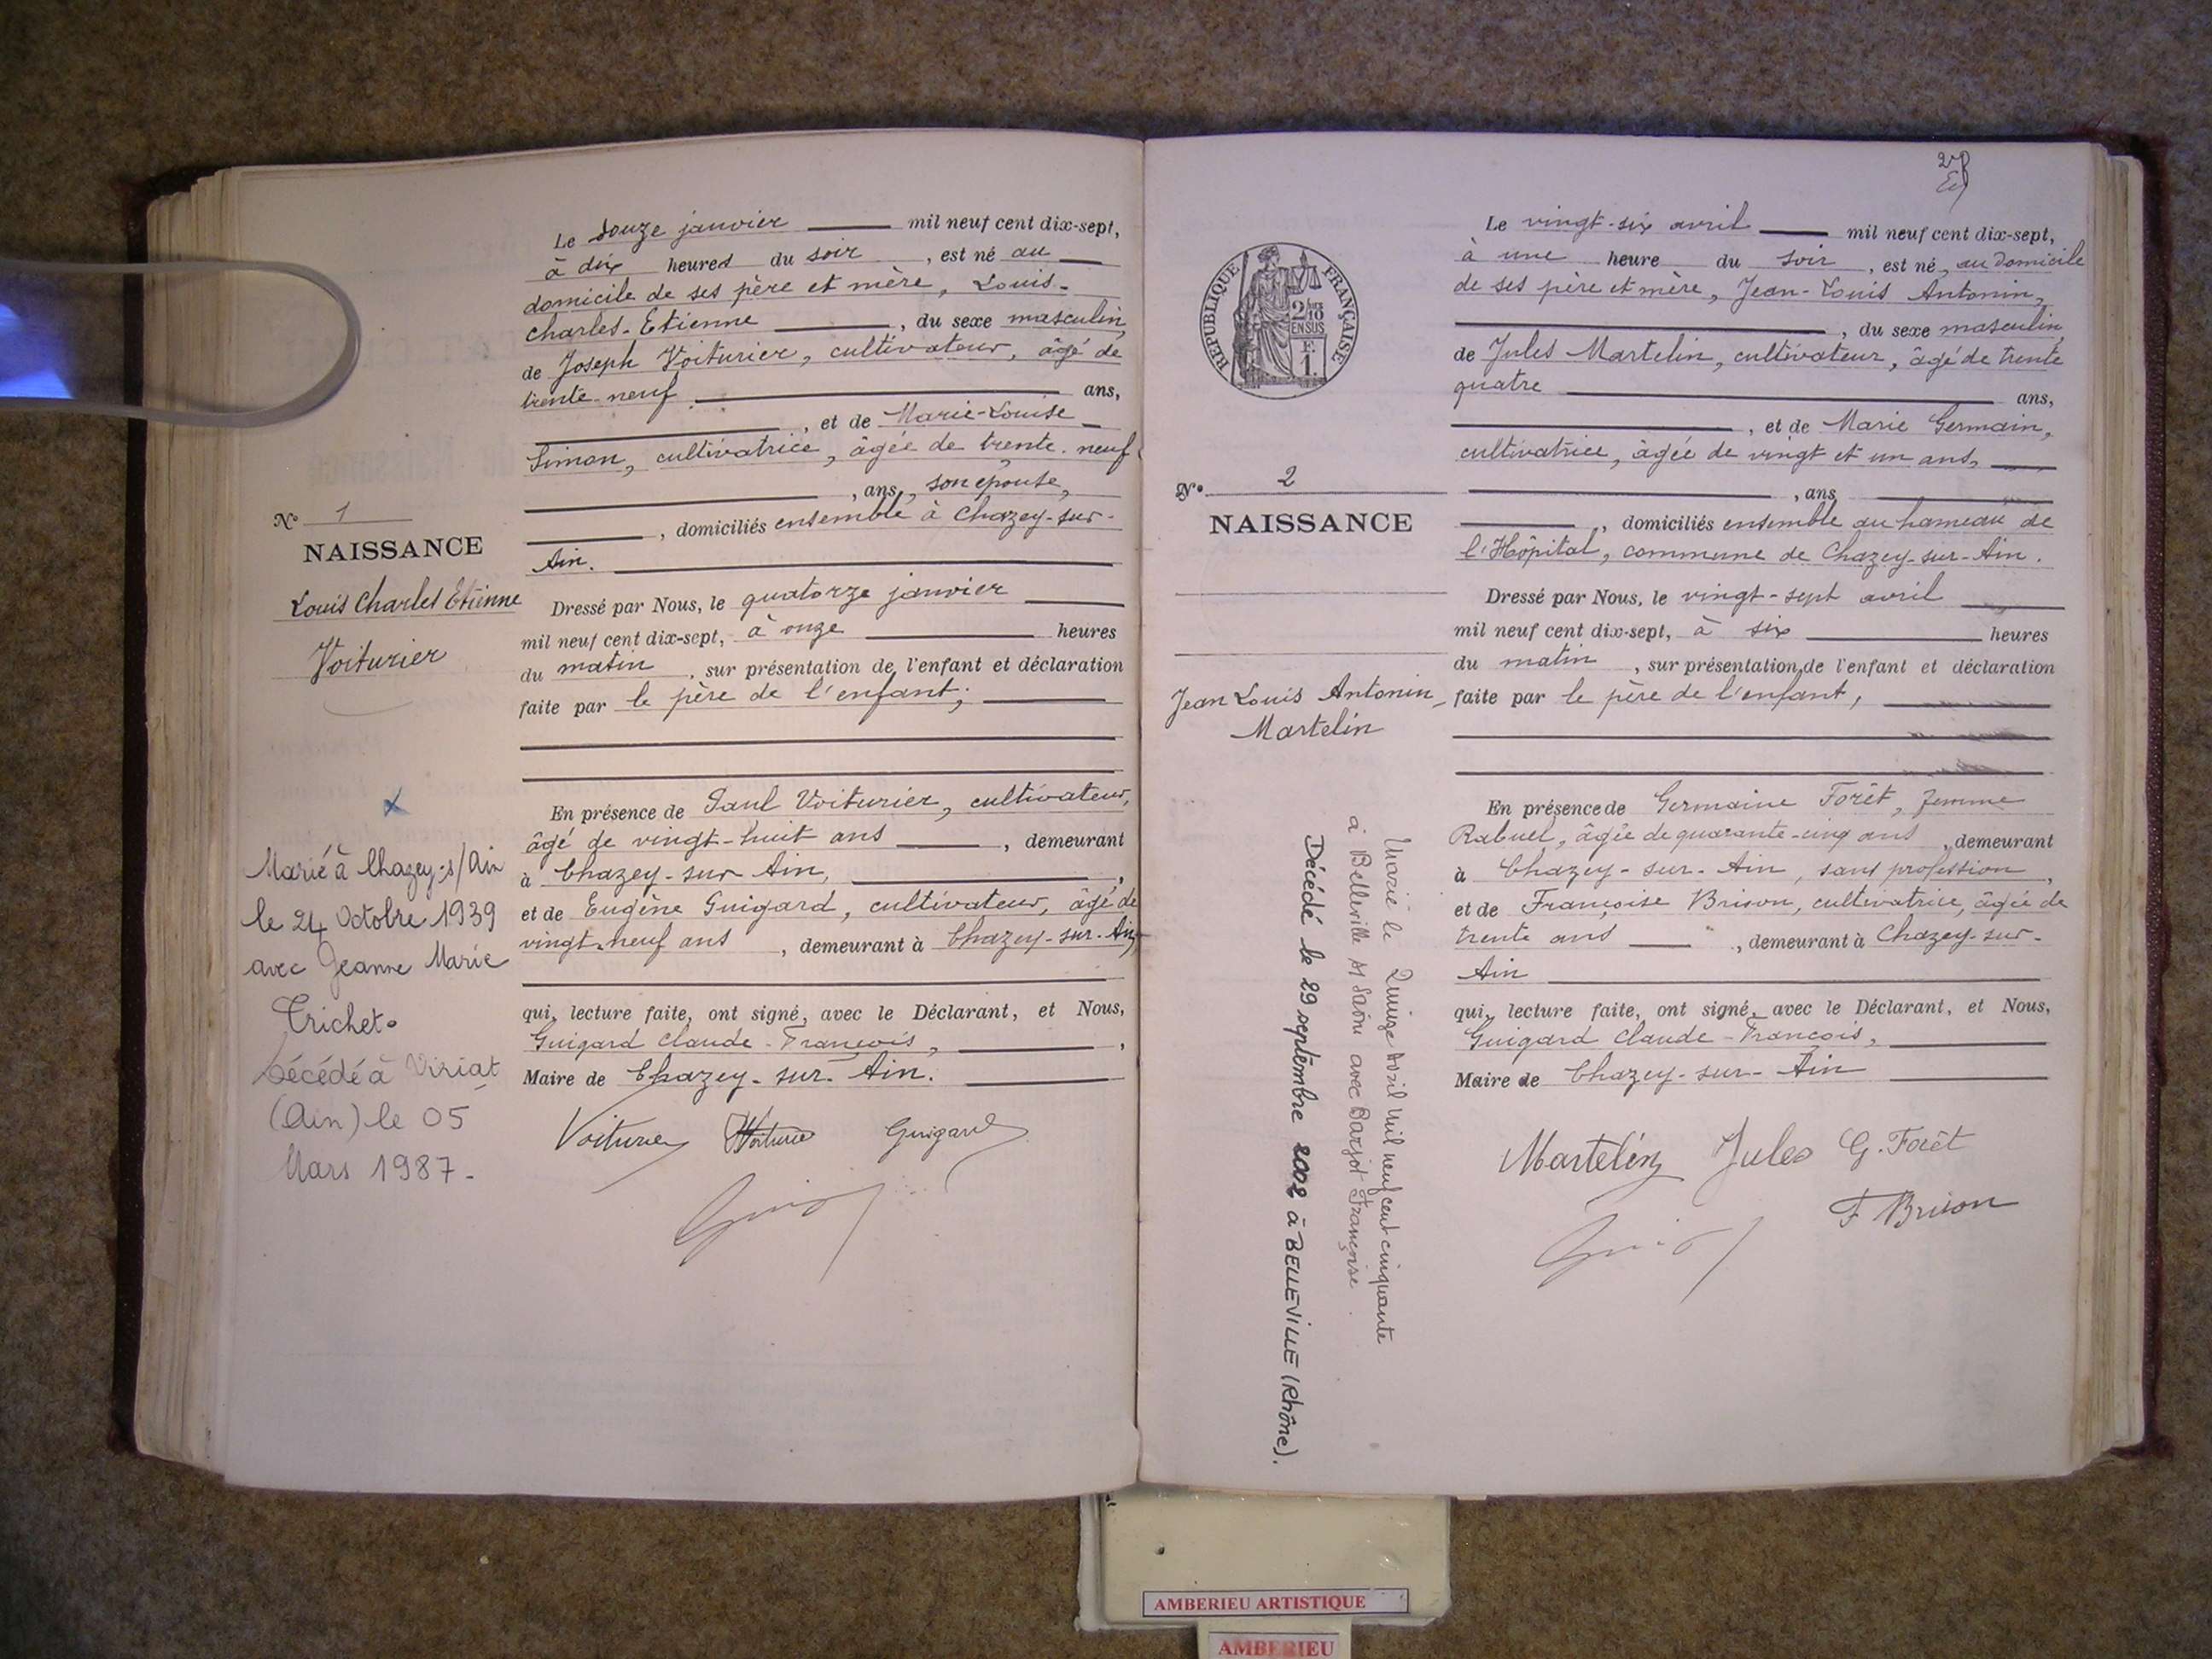 N° 1
NAISSANCE
Louis Charles Etienne
Voiturier
Marié à Chazey-s/Ain
le 24 Octobre 1939
avec Jeanne Marie
Trichet.
Décédé à Viriat
(Ain) le 05
Mars 1987.
Le douze janvier mil neuf cent dix-sept,
à dix heures du soir, est né au
domicile de ses père et mère, Louis-
Charles-Etienne, du sexe masculin,
de Joseph Voiturier, cultivateur, âgé de
trente-neuf ans,
, et de Marie-Louise
Simon, cultivatrice, âgée de trente-neuf
, ans, son épouse,
, domiciliés ensemble à Chazey-sur-
Ain.
Dressé par Nous, le quatorze janvier
mil neuf cent dix-sept, à onze heures
du matin, sur présentation de l'enfant et déclaration
faite par le père de l'enfant;
En présence de Paul Voiturier, cultivateur,
âgé de vingt-huit ans, demeurant
à Chazey-sur-Ain,
et de Eugène Guigard, cultivateur, âgé de
vingt-neuf ans, demeurant à Chazey-sur-Ain,
qui, lecture faite, ont signé, avec le Déclarant, et Nous,
Guigard Claude-François,
Maire de Chazey-sur-Ain.
Voiturier Voiturier Guigard
27
REPUBLIQUE FRANÇAISE
2/10 EN SUS
F. 1.
N° 2
NAISSANCE
Jean Louis Antonin
Martelin
Marié le Quinze Avril Mil neuf cent cinquante
à Belleville s/ Saône avec Barjot Françoise.
Décédé le 29 septembre 2002 à BELLEVILLE (Rhône).
Le vingt-six avril mil neuf cent dix-sept,
à une heure du soir, est né, au domicile
de ses père et mère, Jean-Louis Antonin,
, du sexe masculin,
de Jules Martelin, cultivateur, âgé de trente
quatre ans,
, et de Marie Germain,
cultivatrice, âgée de vingt et un ans,
, ans
, domiciliés ensemble au hameau de
l'Hôpital, commune de Chazey-sur-Ain.
Dressé par Nous, le vingt-sept avril
mil neuf cent dix-sept, à six heures
du matin, sur présentation de l'enfant et déclaration
faite par le père de l'enfant,
En présence de Germaine Forêt, femme
Rabuel, âgée de quarante-cinq ans, demeurant
à Chazey-sur-Ain, sans profession,
et de Françoise Brison, cultivatrice, âgée de
trente ans, demeurant à Chazey-sur-
Ain
qui, lecture faite, ont signé, avec le Déclarant, et Nous,
Guigard Claude-François,
Maire de Chazey-sur-Ain
Martelin Jules G. Forêt
F Brison
AMBERIEU ARTISTIQUE
AMBERIEU